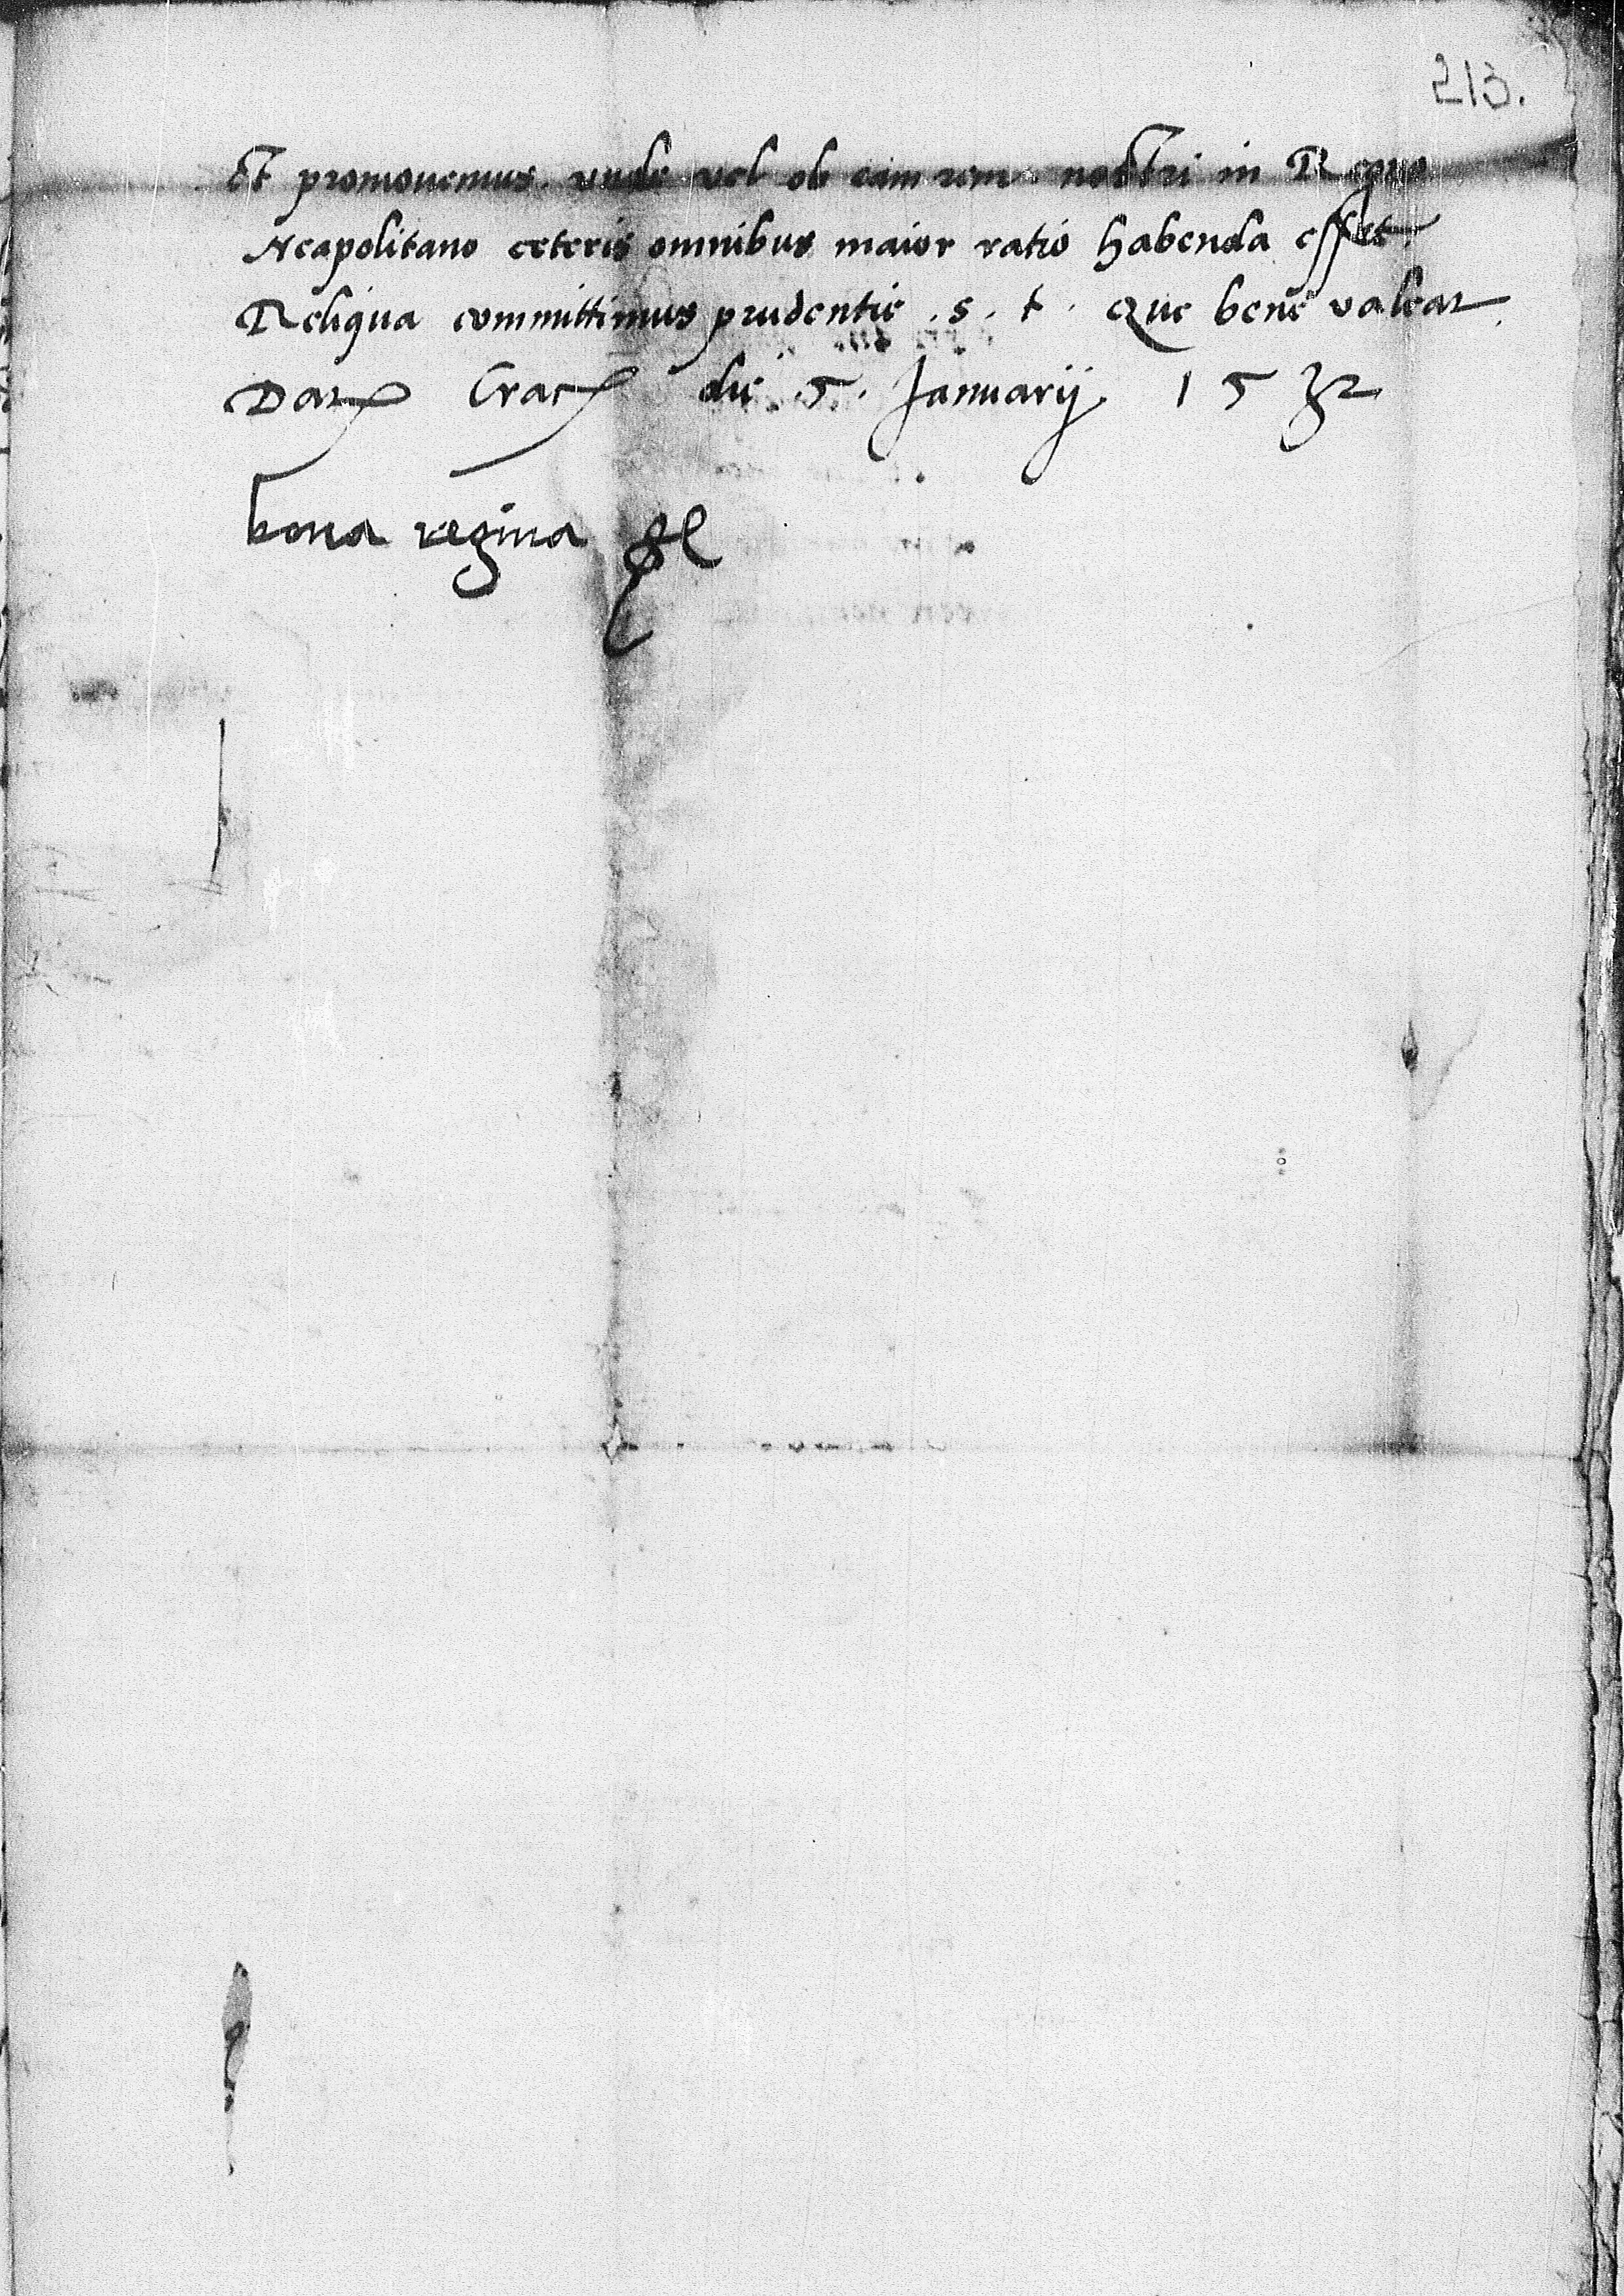 213.
Et promouemus. unde vel ob eam rem. nostri in Regno
Neapolitano ceteris omnibus maior ratio habenda esset.
Reliqua committimus prudentie . s . t . Que bene valeat.
Dat Crac die .5. Januarij 1532
bona regina